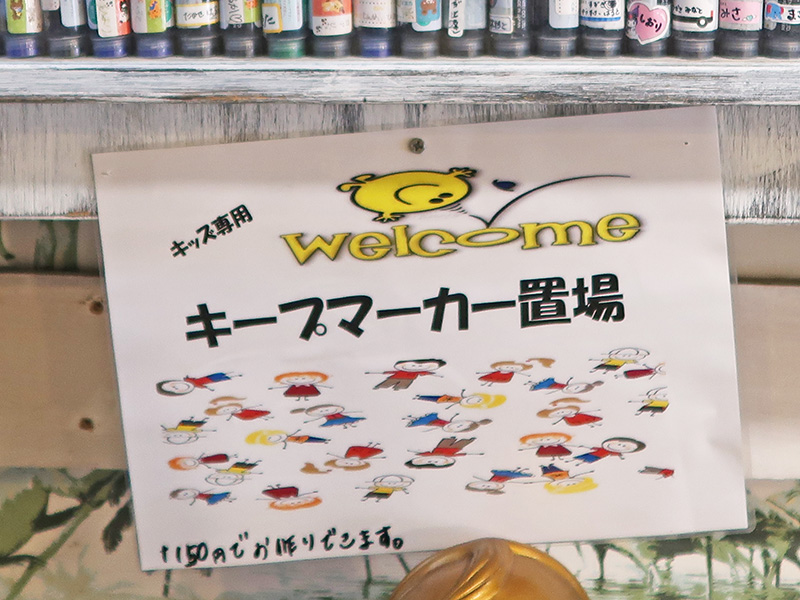 しおり
みなと
みさき
キッズ専用
welcome
キープマーカー置場
+150円でお作りできます。